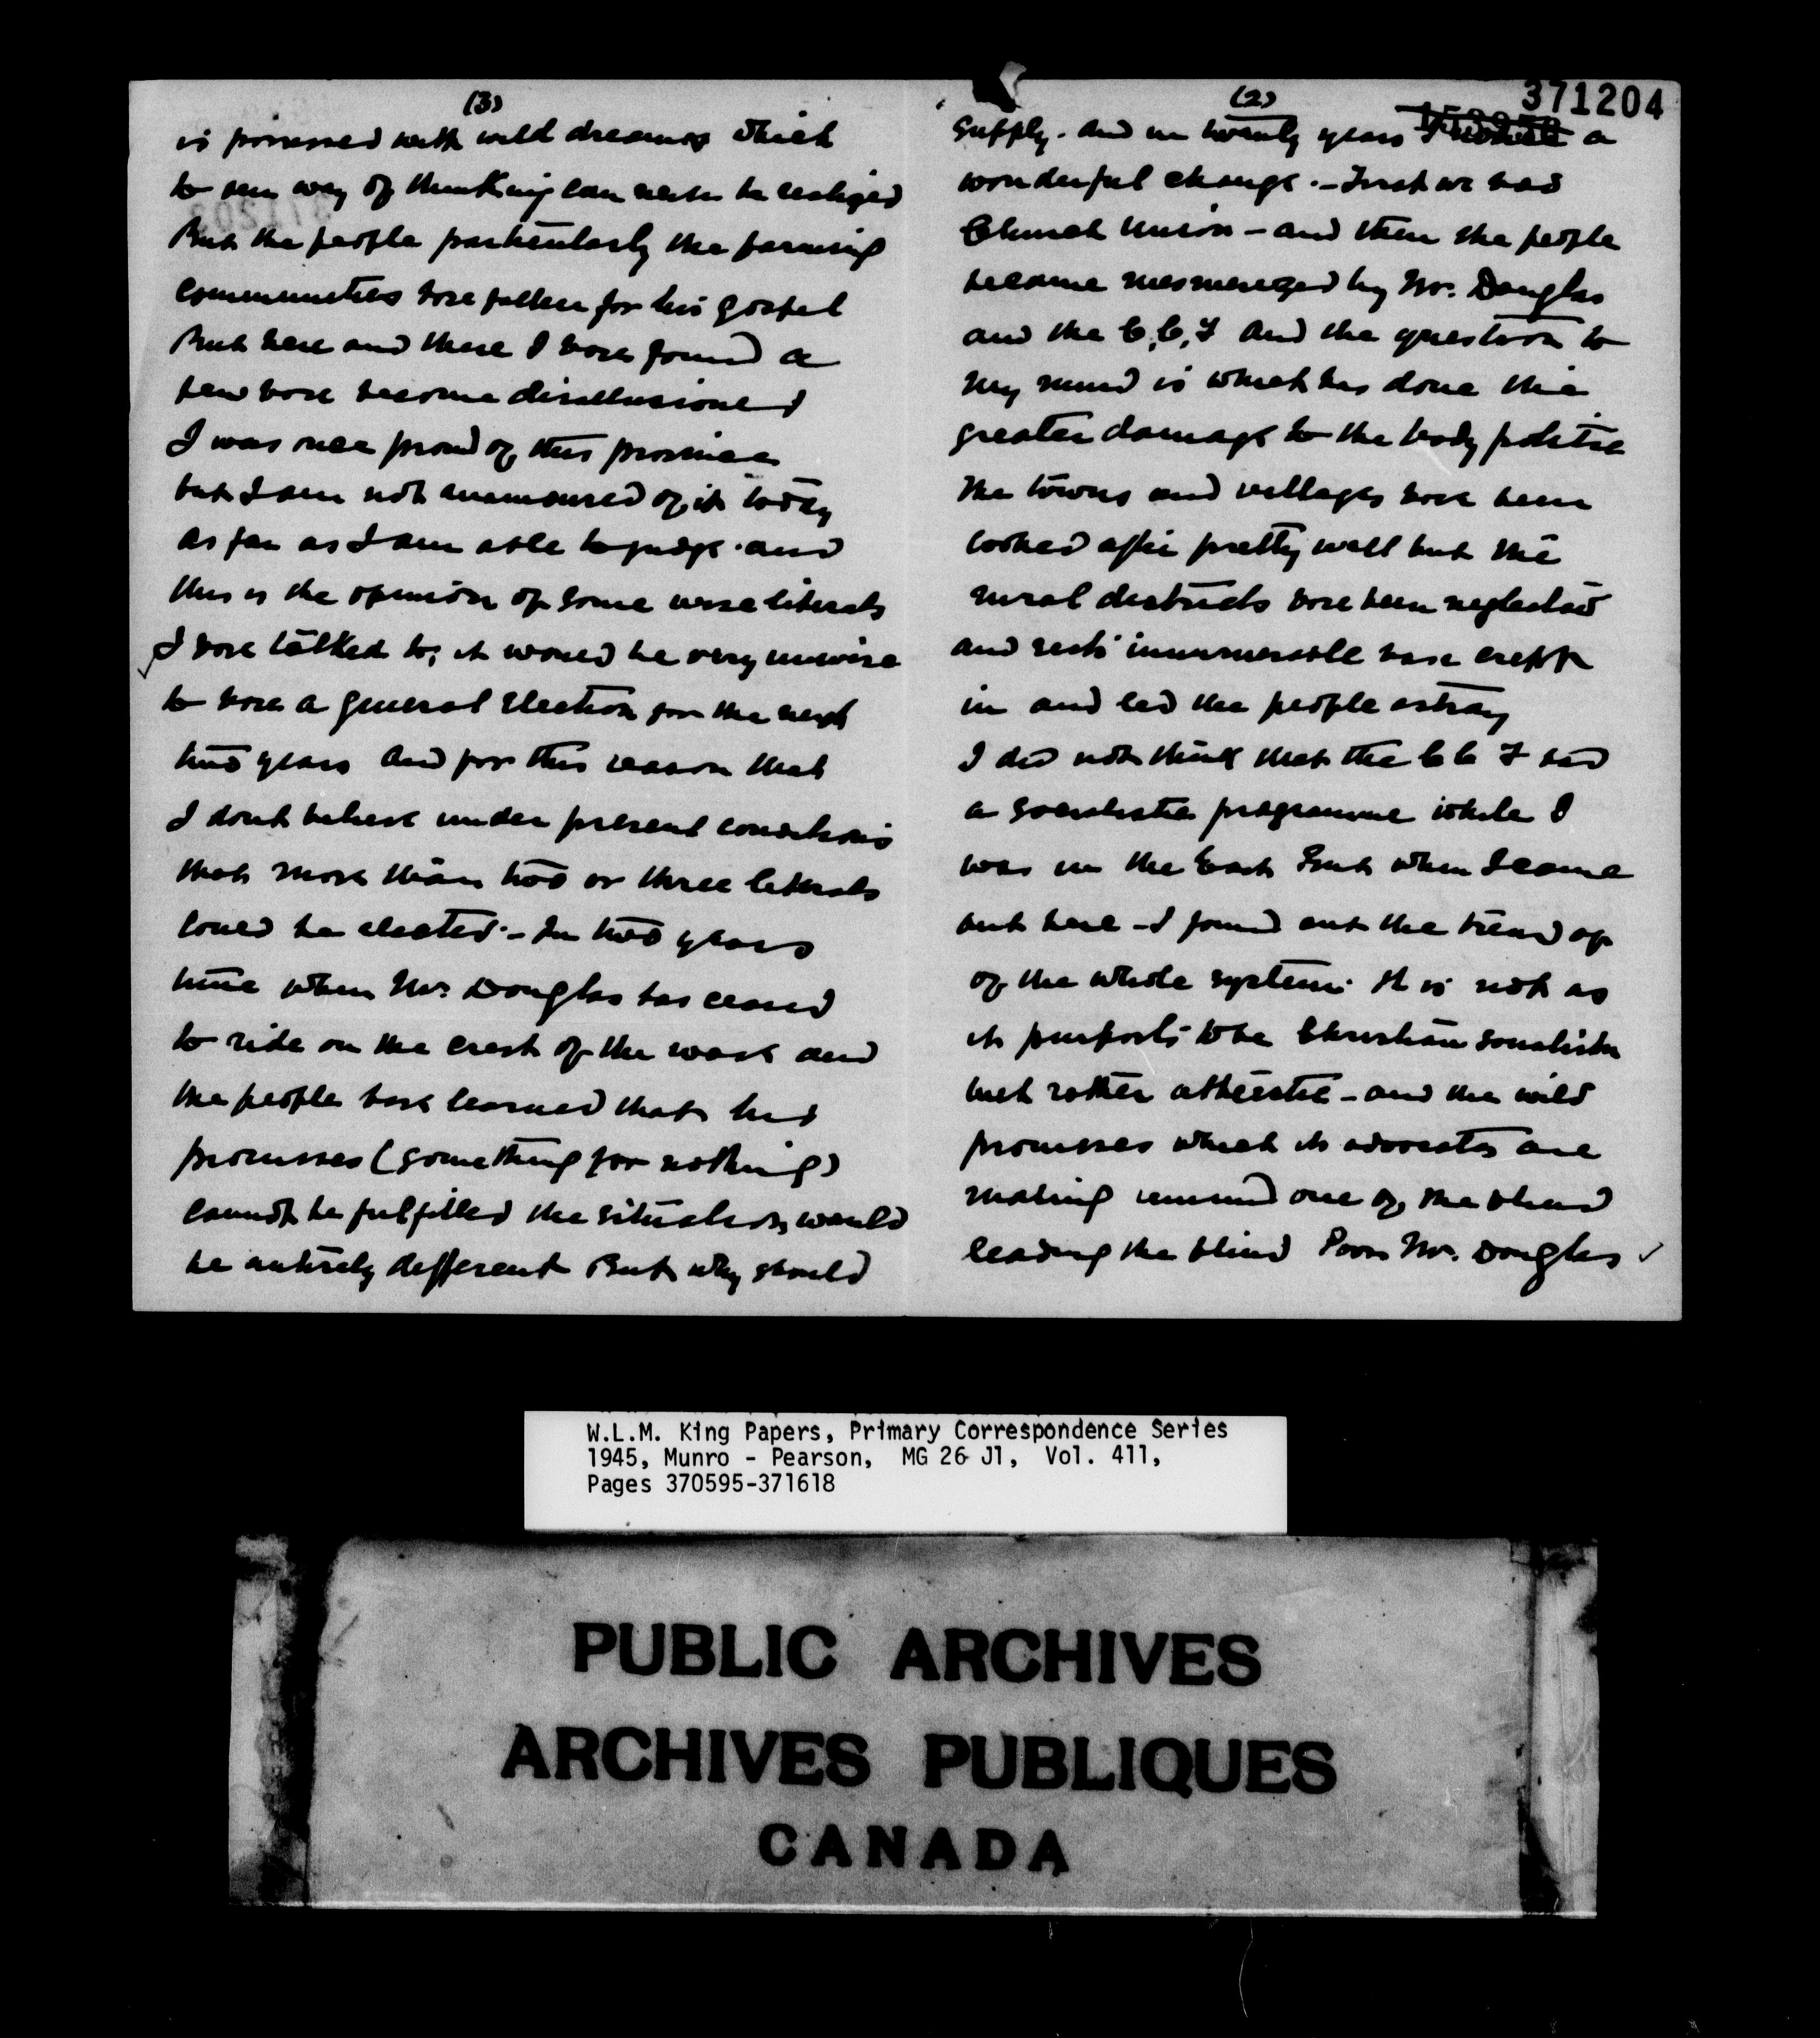 371204
(2)
supply. and in twenty years I notice a
wonderful change. - First we had
Church Union - and then the people
became mesmerized by Mr. Douglas
and the C.C.F and the question to
my mind is which has done the
greater damage to the body politic
The towns and villages have been
looked after pretty well but the
rural districts have been neglected
and sects innumerable have crept
in and led the people astray
I did not think that the C C F had
a socialistic programme while I
was in the East but when I came
out here - I found out the trend of
of the whole system. It is not as
it purports to be Christian socialistic
but rather atheistic - and the wild
promises which its advocates are
making remind one of the blind
leading the blind Poor Mr. Douglas
(3)
is possessed with wild dreams which
to my way of thinking can never be realized
But the people particularly the farming
communities have fallen for his gospel
But here and there I have found a
few have become disillusioned
I was once proud of this province
but I am not enamoured of it today
as far as I am able to judge. and
this is the opinion of some wise liberals
I have talked to, it would be very unwise
to have a general Election for the next
two years and for this reason that
I dont believe under present conditions
that more than two or three liberals
could be elected. - In two years
time when Mr. Douglas has ceased
to ride on the crest of the wave and
the people have learned that his
promises (something for nothing)
cannot be fulfilled the situation would
be entirely different But why should
W.L.M. King Papers, Primary Correspondence Series
1945, Munro - Pearson, MG 26 J1, Vol. 411,
Pages 370595-371618
PUBLIC ARCHIVES
ARCHIVES PUBLIQUES
CANADA